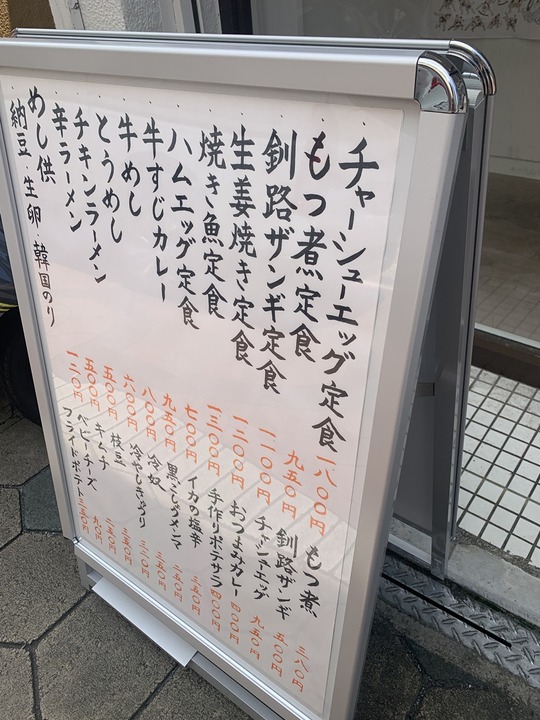 ・チャーシューエッグ定食 一八〇〇円
・もつ煮定食 九五〇円
・釧路ザンギ定食 一一〇〇円
・生姜焼き定食 一二〇〇円
・焼き魚定食 一三〇〇円
・ハムエッグ定食 七〇〇円
・牛すじカレー 九五〇円
・牛めし 八〇〇円
・とうめし 六〇〇円
・チキンラーメン 五〇〇円
・辛ラーメン 五〇〇円
めし供 一二〇円
納豆 生卵・韓国のり
もつ煮 三八〇円
釧路ザンギ 五〇〇円
チャーシューエッグ 九五〇円
おつまみカレー 四〇〇円
手作りポテサラ 四〇〇円
イカの塩辛 三五〇円
黒こしょうメンマ 二五〇円
冷奴 二五〇円
冷やしきゅうり 三二〇円
枝豆 二五〇円
キムチ 二五〇円
ベビーチーズ 九〇円
フライドポテト 三五〇円